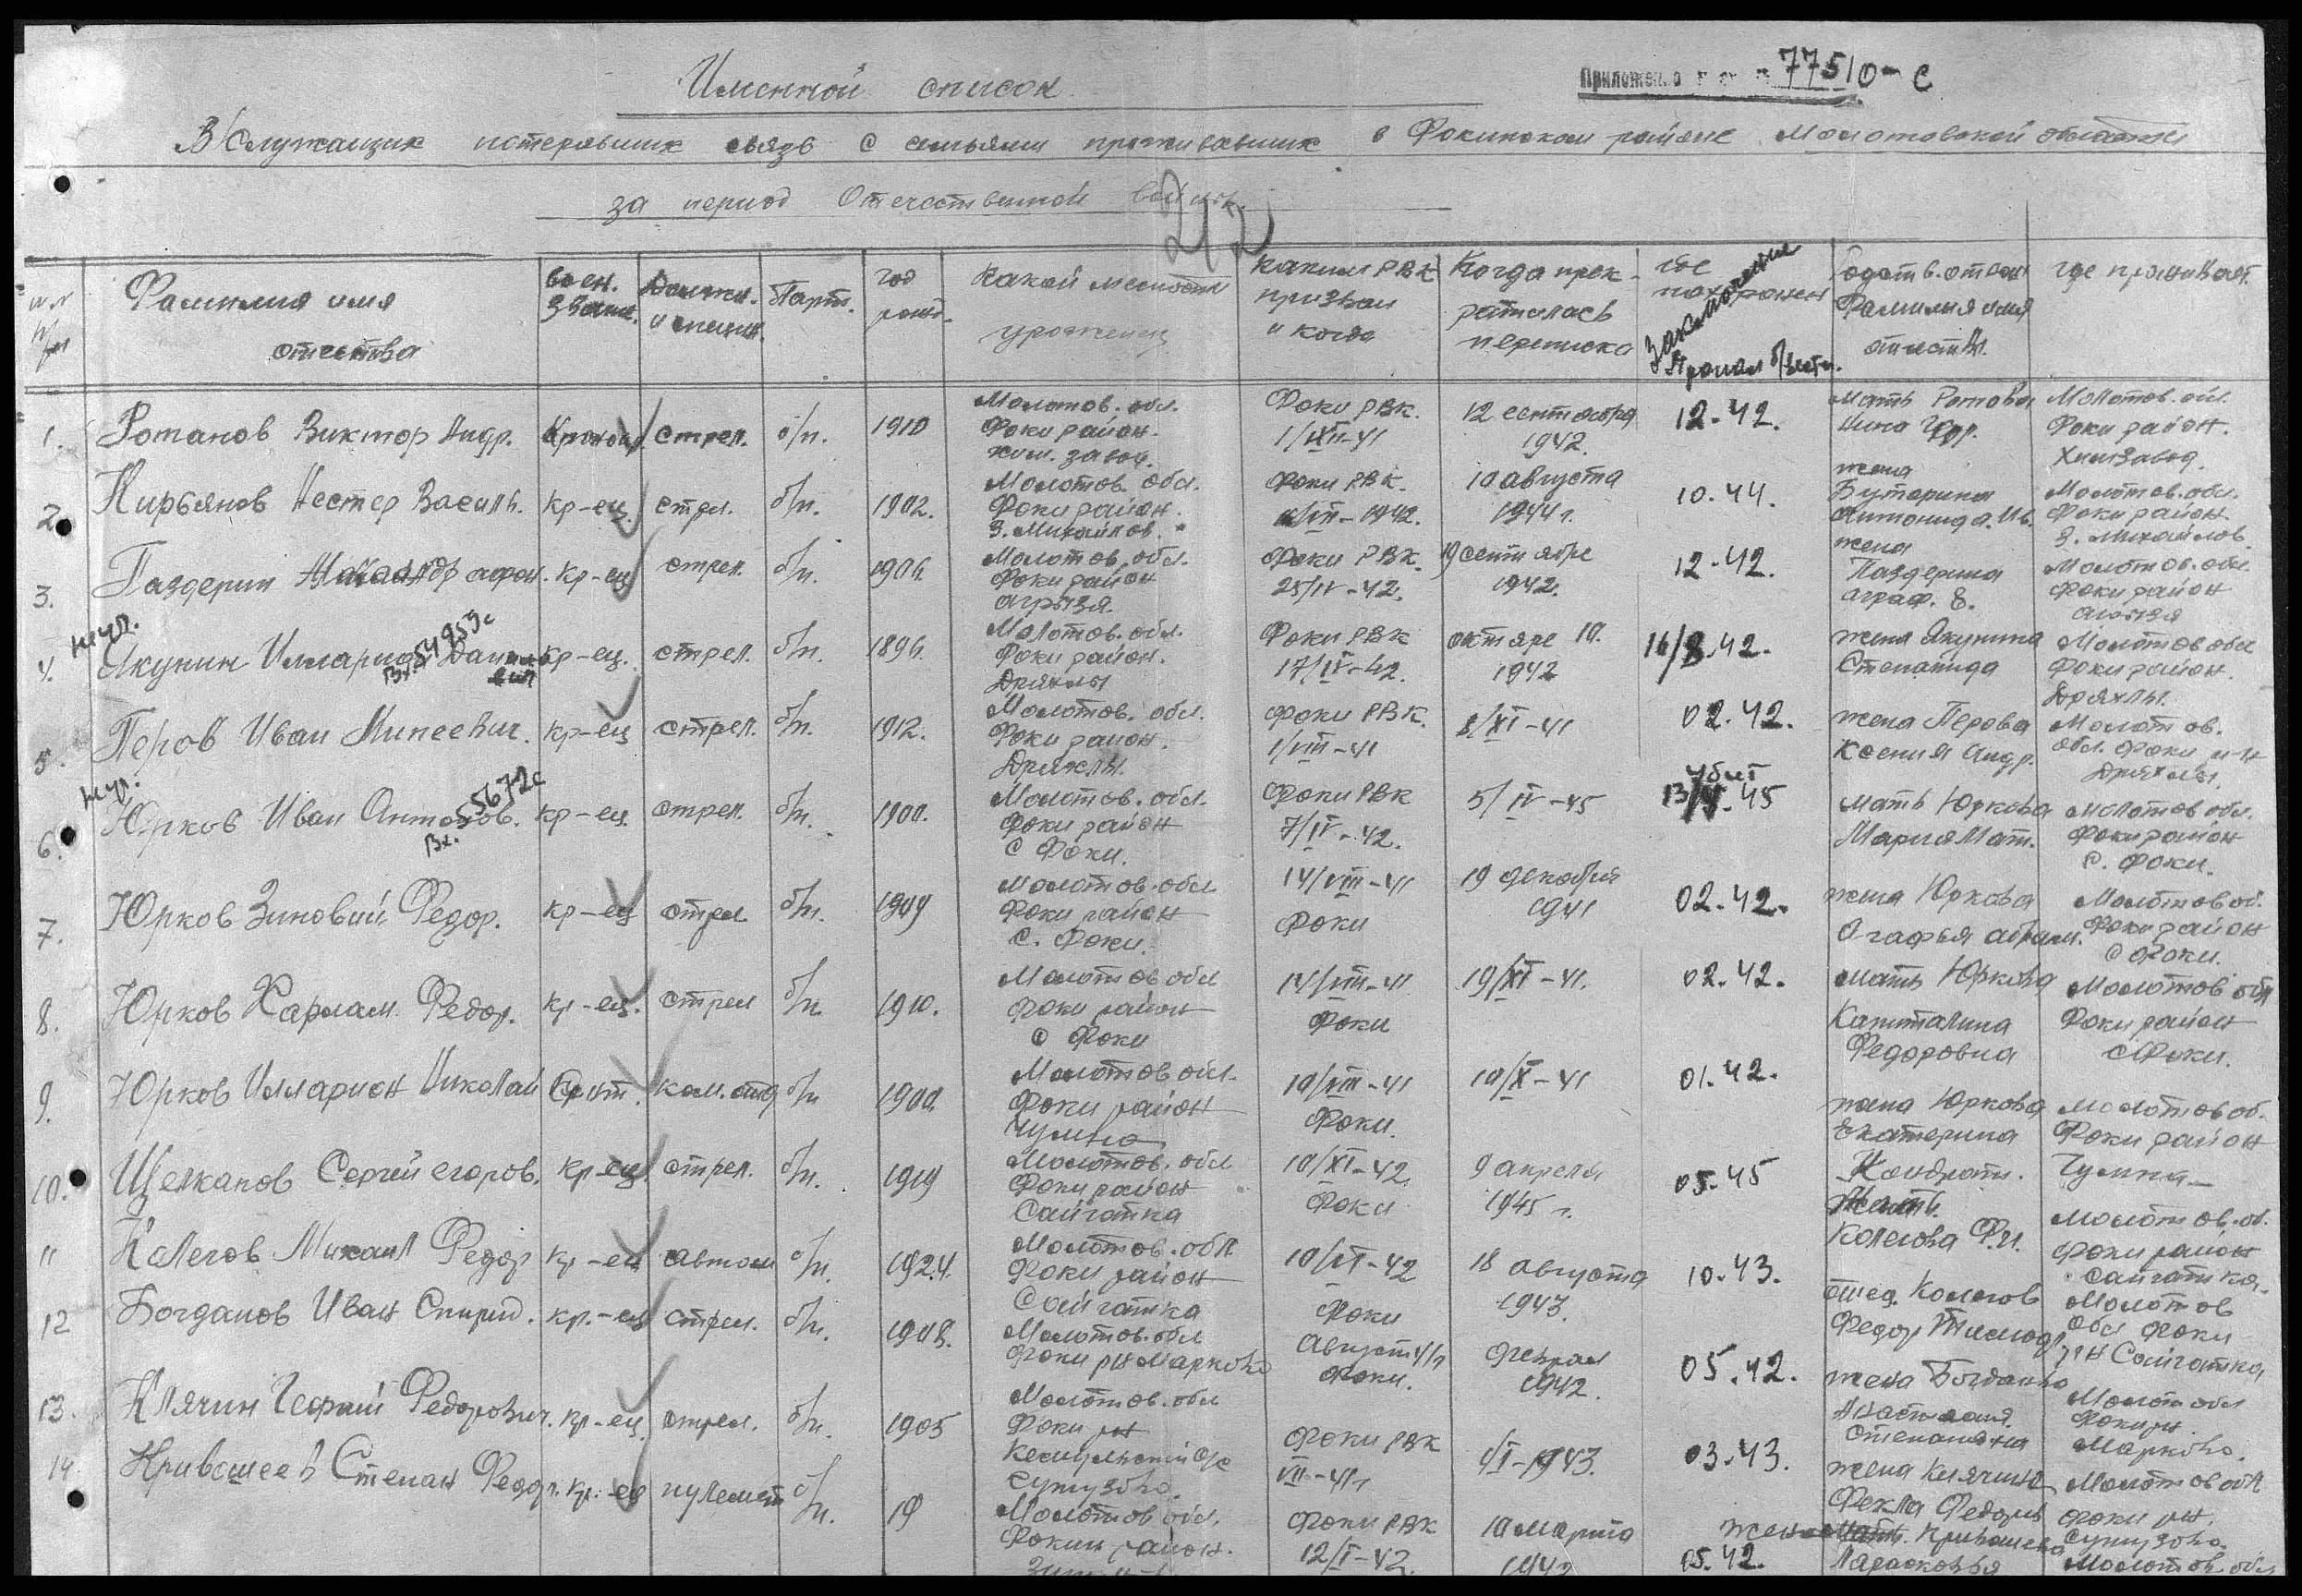 Именной список
Приложение 77510-с
В/служащих потерявших связь с семьями проживавших в Фокинском районе Молотовской области
за период Отечественной войны.
212
Фамилия имя отчества
воен. звание.
Должн. и специал.
Парт.
год рожд.
Какой местности уроженец
Каким РВК призван и когда
Когда прек-ратилась переписка
где похоронен
Заключение
Пропал б/вести.
Фамилия имя отчеств.
где проживает.
1. Ротанов Виктор Андр. стрел. б/п. 1910
Молотов. обл. Фоки район. хим. завод.
Фоки РВК. 1/XII-41
12 сентября 1942.
12.42.
мать Нина Гр.
Молотов. обл. Фоки район. Химзавод.
2. Кирьянов Нестер Василь. кр-ец. стрел. б/п. 1902.
Молотов. обл. Фоки район. З. Михайлов.
Фоки РВК. 1942.
10 августа 1944 г.
10.44.
жена Бутарина Антонида. Ив.
Молотов. обл. Фоки район З. Михайлов.
3. Паздерин афон. кр-ец стрел. б/п. 1906.
Молотов. обл. Фоки район
Фоки РВК. 25/IV-42.
19 сентября 1942.
12.42.
жена Паздерина аграф. Е.
Молотов. обл. Фоки район
4. Якунин Илларион Данилович кр-ец. стрел. б/п. 1896.
Вх. 54959с
Молотов. обл. Фоки район. Дряхлы
Фоки РВК 17/IV-42.
октяре 10. 1942
16/8.42.
жена Якунина Степанида
Молотов обл Фоки район. Дряхлы.
5. Перов Иван Минеевич. кр-ец стрел. б/п. 1912.
Молотов. обл. Фоки район. Дряхлы.
Фоки РВК. 1/VIII-41
8/XI-41
02.42.
жена Перова Ксения Андр.
Молотов. обл. Фоки р-н Дряхлы.
6. Юрков Иван Антонов. кр-ец. стрел. б/п. 1900.
Вх. 55672с
Молотов. обл. Фоки район С Фоки.
Фоки РВК 7/IV-42.
5/IV-45
убит 45
мать Юркова Мария Мат.
Молотов обл. Фоки район С. Фоки.
7. Юрков Зиновий Федор. кр-ец стрел б/п. 1909
Молотов. обл Фоки район С. Фоки.
14/VIII-41 Фоки
19 декабря 1941
02.42.
жена Юркова Агафья абрам.
Молотов об. Фоки район С Фоки.
8. Юрков Харлам. Федор. кр-ец. стрел б/п. 1910.
Молотов обл Фоки район С Фоки
14/VIII-41 Фоки
19/XI-41.
02.42.
мать Юркова Капиталина Федоровна
Молотов обл Фоки район С Фоки.
9. Юрков Илларион Николай ком. отд б/п 1900.
Молотов обл. Фоки район Чумна
10/VIII-41 Фоки.
10/X-41
01.42.
жена Юркова Екатерина Кондрат.
Молотов об. Фоки район Чумна
10. Щелканов Сергей егоров. кр-ец стрел. б/п. 1919
Молотов. обл Фоки район Сайгатка
10/XI-42 Фоки
9 апреля 1945 г.
05.45
Колегова Ф.И.
Молотов. об. Фоки район Сайгатка.
11 Колегов Михаил Федор кр-ец автом б/п. 1924.
Молотов. обл Фоки район Сайгатка
10/VI-42 Фоки
18 августа 1943.
10.43.
отец. Колегов Федор
Молотов обл Фоки р-н Сайгатка
12 Богданов Иван Спирид. кр.-ец стрел. б/п. 1908.
Молотов. обл Фоки рн Марково
Август 41 г Фоки.
феврал 1942.
05.42.
жена Богданова Анастасия. Степановна
Молотов обл Фоки рн. Марково.
13. Клячин Георгий Федорович. кр-ец. стрел. б/п. 1905
Молотов. обл Фоки рн
Фоки РВК VII-41 г
1943.
03.43.
жена Клячина Фекла Федоров
Молотов обл Фоки рн.
14. Кривошеев Степан Федор. кр.-ец пулемет б/п. 19
Молотов обл. Фокин район.
Фоки РВК 12/I-42.
10 марта 1942
05.42.
жена Парасковья
Молотов. обл